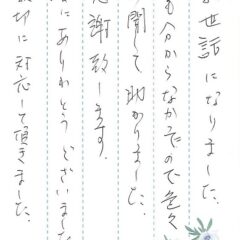 世話になりました。
も分からなかったので色々
聞して助かりました。
感謝致します。
にありがとうございました
切に対応して頂きました。